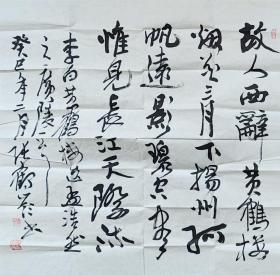 故人西辭黄鶴樓
烟花三月下揚州孤
帆遠影碧空尽
惟見長江天際流
李白黄鶴樓送孟浩然
之廣陵
癸巳年二月張